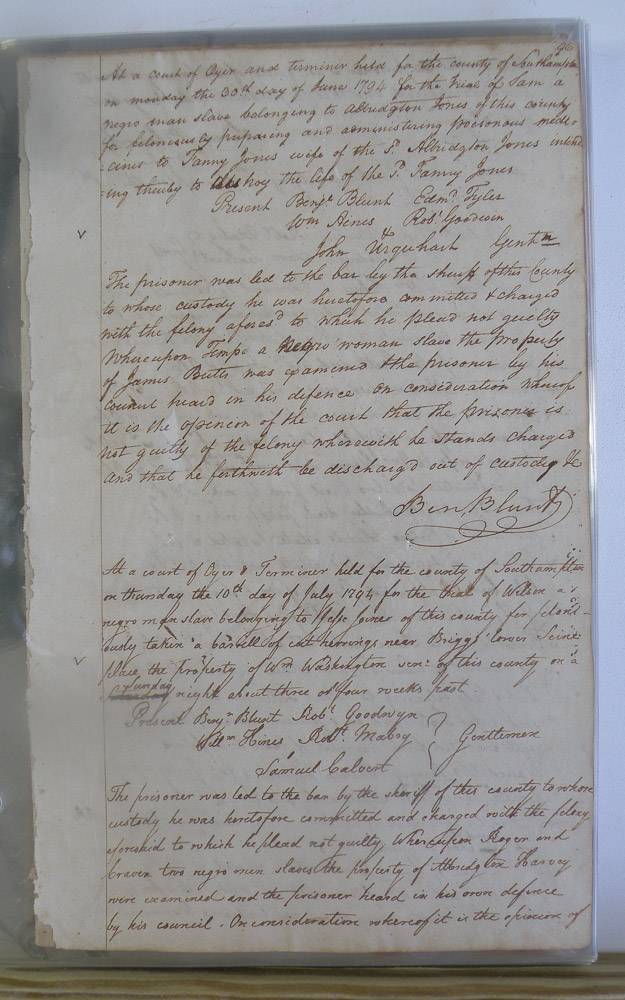 At a court of Oyer and terminer held for the county of Southampton
on monday the 30th day of June 1794 for the trial of Sam a
negro man slave belonging to Albridgton Jones of this county
for feloniously preparing and administering poisonous medi=
cines to Fanny Jones wife of the sd. Albridgton Jones intend
=ing thereby to destroy the life of the sd. Fanny Jones
Present Benja. Blunt Edmd. Tyler
Wm Hines Robt Goodwin
John Urquhart Gentm
The prisoner was led to the bar by the sheriff of this County
to whose custody he was heretofore committed & charged
with the felony aforesd to which he plead not guilty
Whereupon Tempe a Negro woman slave the property
of James Butts was examined & the prisoner by his
council heard in his defence on consideration whereof
it is the opinion of the court that the prisoner is
not guilty of the felony wherewith he stands charged
and that he forthwith be discharg'd out of custody &c
Ben Blunt
At a court of Oyer & Terminer held for the county of Southampton
on thursday the 10th day of July 1794 for the trial of Wilson a
negro man slave belonging to Jesse Joiner of this county for feloni-
ously taking a barrell of cut herrings near Briggs' lower Seine
place the property of Wm Washington senr. of this county on a
sunday night about three or four weeks past.
Present Benjn Blunt Robt Goodwyn
Willm Hines Robt. Mabry } Gentlemen
Samuel Calvert
The prisoner was led to the bar by the sheriff of this county to whose
custody he was heretofore committed and charged with the felony
aforesaid to which he plead not guilty, Whereupon Roger and
Craven two negro men slaves the property of Albridgton Harvey
were examined and the prisoner heard in his own defence
by his council. On consideration whereof it is the opinion of